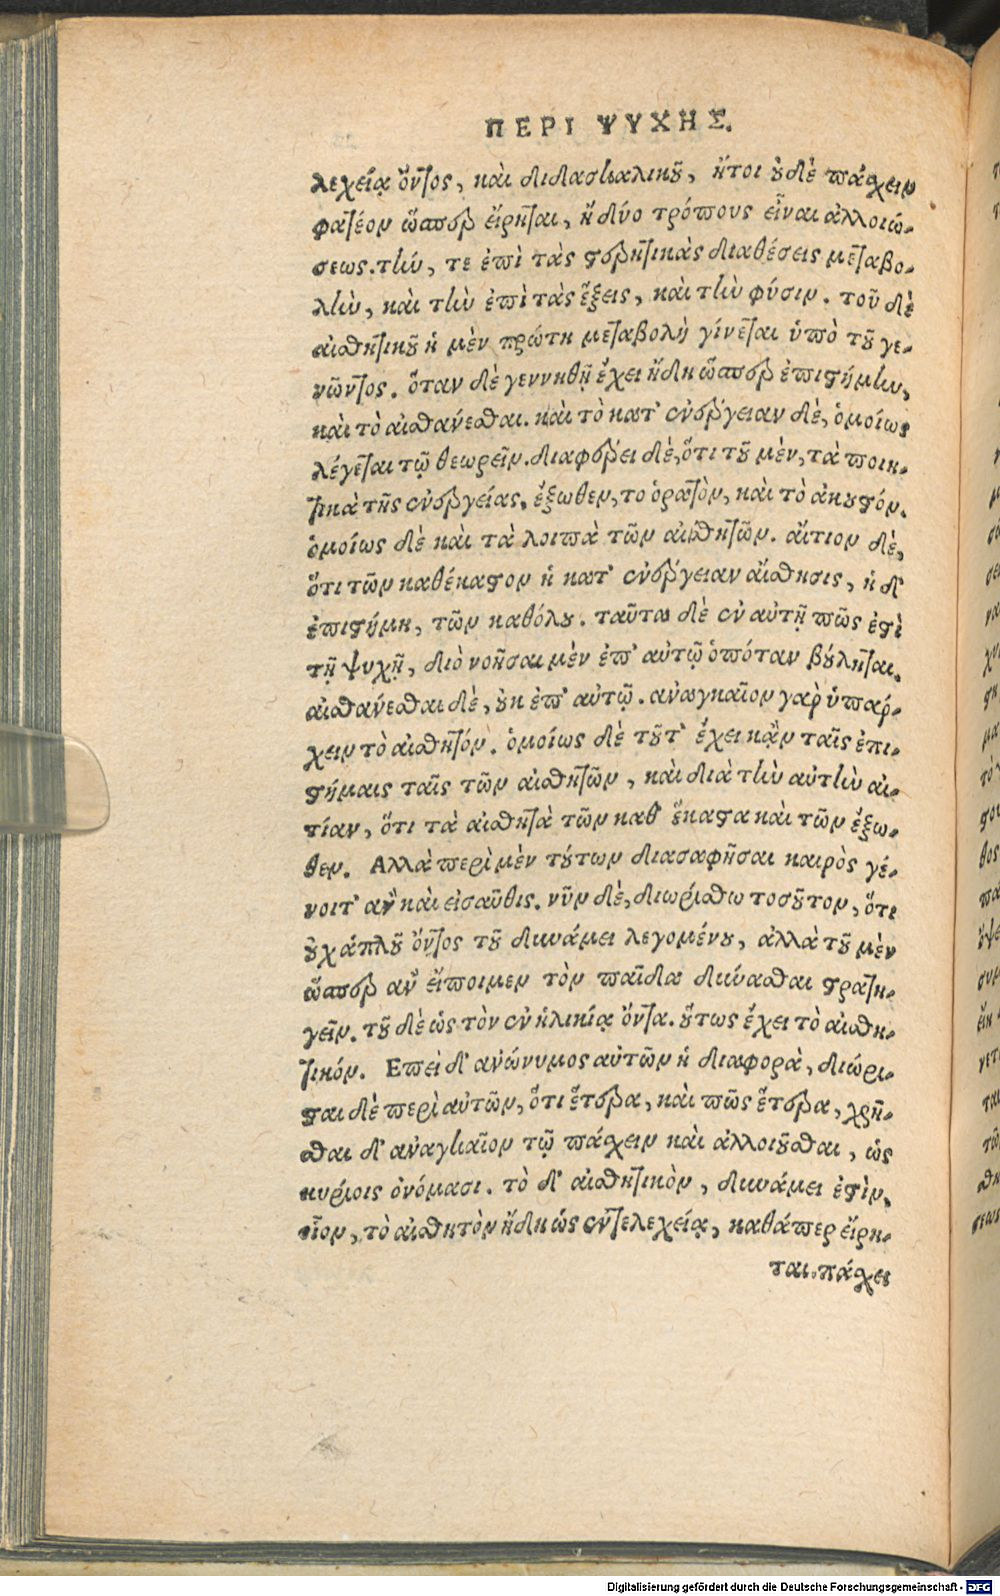 ΠΕΡΙ ΨΥΧΗΣ.
λεχείᾳ ὄντος, καὶ διδασκαλικοῦ, ἤτοι οὐδὲ πάσχειν
φατέον ὥσπερ εἴρηται, ἢ δύο τρόπους εἶναι ἀλλοιώ-
σεως. τήν, τε ἐπὶ τὰς στερητικὰς διαθέσεις μεταβο-
λὴν, καὶ τὴν ἐπὶ τὰς ἕξεις, καὶ τὴν φύσιν. τοῦ δὲ
αἰσθητικοῦ ἡ μὲν πρώτη μεταβολὴ γίνεται ὑπὸ τοῦ γε-
νῶντος. ὅταν δὲ γεννηθῇ ἔχει ἤδη ὥσπερ ἐπιστήμην,
καὶ τὸ αἰσθάνεσθαι. καὶ τὸ κατ' ἐνέργειαν δὲ, ὁμοίως
λέγεται τῷ θεωρεῖν. διαφέρει δὲ, ὅτι τοῦ μὲν, τὰ ποιη-
τικὰ τῆς ἐνεργείας, ἔξωθεν, το ὁρατὸν, καὶ τὸ ἀκουστόν.
ὁμοίως δὲ καὶ τὰ λοιπὰ τῶν αἰσθητῶν. αἴτιον δὲ,
ὅτι τῶν καθέκαστον ἡ κατ' ἐνέργειαν αἴσθησις, ἡ δ'
ἐπιστήμη, τῶν καθόλου. ταῦτα δὲ ἐν αὐτῇ πῶς ἐστὶ
τῇ ψυχῇ, διὸ νοῆσαι μὲν ἐπ' αὐτῷ ὁπόταν βούληται.
αἰσθάνεσθαι δὲ, οὐκ ἐπ' αὐτῷ. ἀναγκαῖον γὰρ ὑπάρ-
χειν τὸ αἰσθητόν. ὁμοίως δὲ τοῦτ' ἔχει κᾂν ταῖς ἐπι-
στήμαις ταῖς τῶν αἰσθητῶν, καὶ διὰ τὴν αὐτὴν αἰ-
τίαν, ὅτι τὰ αἰσθητὰ τῶν καθ' ἕκαστα καὶ τῶν ἔξω-
θεν. Αλλὰ περὶ μὲν τούτων διασαφῆσαι καιρὸς γέ-
νοιτ' ἂν καὶ εἰσαῦθις. νῦν δὲ, διωρίσθω τοσοῦτον, ὅτι
οὐχ ἁπλοῦ ὄντος τοῦ δυνάμει λεγομένου, ἀλλὰ τοῦ μὲν
ὥσπερ ἂν εἴποιμεν τὸν παῖδα δύνασθαι στρατη-
γεῖν. τοῦ δὲ ὡς τὸν ἐν ἡλικίᾳ ὄντα. οὕτως ἔχει τὸ αἰσθη-
τικόν. Επεὶ δ' ἀνώνυμος αὐτῶν ἡ διαφορὰ, διώρι-
σται δὲ περὶ αὐτῶν, ὅτι ἕτερα, καὶ πῶς ἕτερα, χρῆ-
σθαι δ' ἀναγκαῖον τῷ πάσχειν καὶ ἀλλοιοῦσθαι, ὡς
κυρίοις ὀνόμασι. τὸ δ' αἰσθητικὸν, δυνάμει ἐστὶν,
οἷον, τὸ αἰσθητὸν ἤδη ὡς ἐντελεχείᾳ, καθάπερ εἴρη-
ται. πάσχει
Digitalisierung gefördert durch die Deutsche Forschungsgemeinschaft - DFG